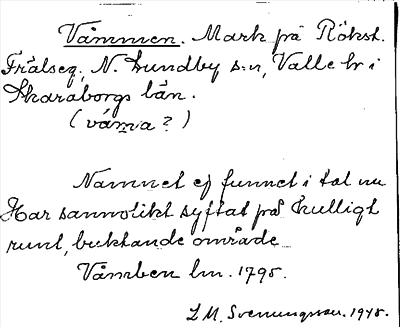 Våmmen. Mark på Rökst.
Frälseg., N. Lundby s:n, Valle hr i
Skaraborgs län.
(våma?)
Namnet ej funnet i tal nu
Har sannolikt syftat på kulligt
runt, buktande område
Våmben lm. 1795.
L M. Svenungsson. 1948.